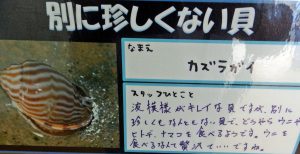 別に珍しくない貝
なまえ
カズラガイ
スタッフのひとこと
波模様がキレイな貝ですが、別に
珍しくもなんともない貝で、どうやらウニや
ヒトデ、ナマコを食べるようです。ウニを
食べるなんて贅沢で‥‥ですね。